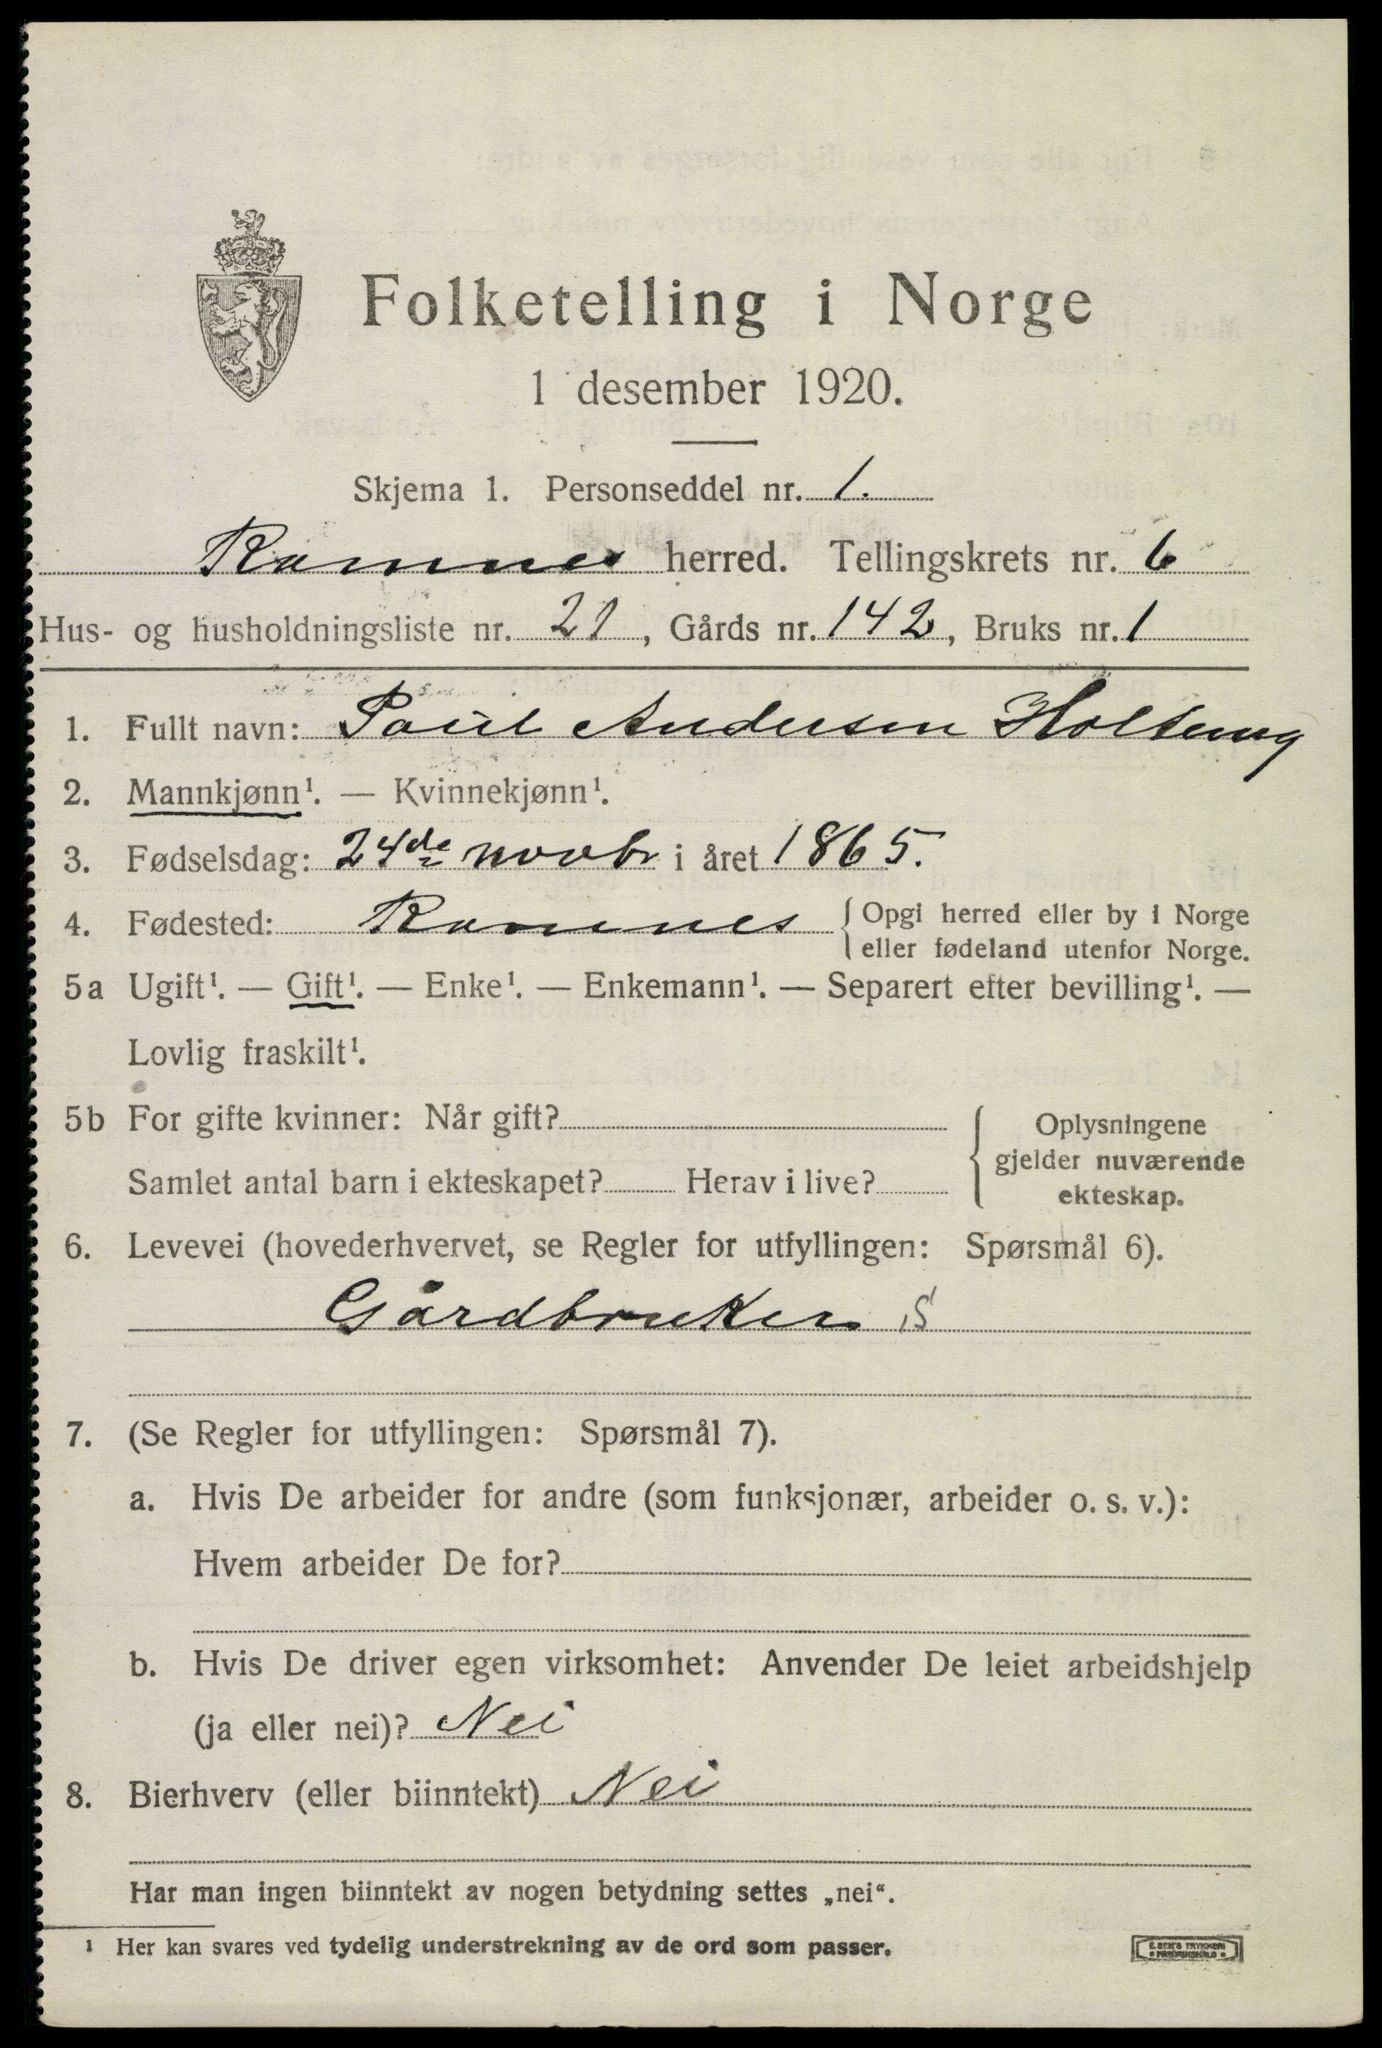 Folketelling i Norge
1 desember 1920.
Skjema 1. Personseddel nr. 1.
Ramnes herred. Tellingskrets nr. 6
Hus- og husholdningsliste nr. 21, Gårds nr. 142, Bruks nr. 1
1. Fullt navn: Paul Andersen Holtung
2. Mannkjønn¹. — Kvinnekjønn¹.
3. Fødselsdag: 24de novbr i året 1865.
4. Fødested: Ramnes { Opgi herred eller by i Norge
eller fødeland utenfor Norge.
5a Ugift¹. — Gift¹. — Enke¹. — Enkemann¹. — Separert efter bevilling¹. —
Lovlig fraskilt¹.
5b For gifte kvinner: Når gift?
Samlet antal barn i ekteskapet? Herav i live?
Oplysningene
gjelder nuværende
ekteskap.
6. Levevei (hovederhvervet, se Regler for utfyllingen: Spørsmål 6).
Gårdbruker S
7. (Se Regler for utfyllingen: Spørsmål 7).
a. Hvis De arbeider for andre (som funksjonær, arbeider o. s. v.):
Hvem arbeider De for?
b. Hvis De driver egen virksomhet: Anvender De leiet arbeidshjelp
(ja eller nei)? Nei
8. Bierhverv (eller biinntekt) Nei
Har man ingen biinntekt av nogen betydning settes „nei“.
¹ Her kan svares ved tydelig understrekning av de ord som passer.
E. SEM'S TRYKKERI
FREDRIKSHALD